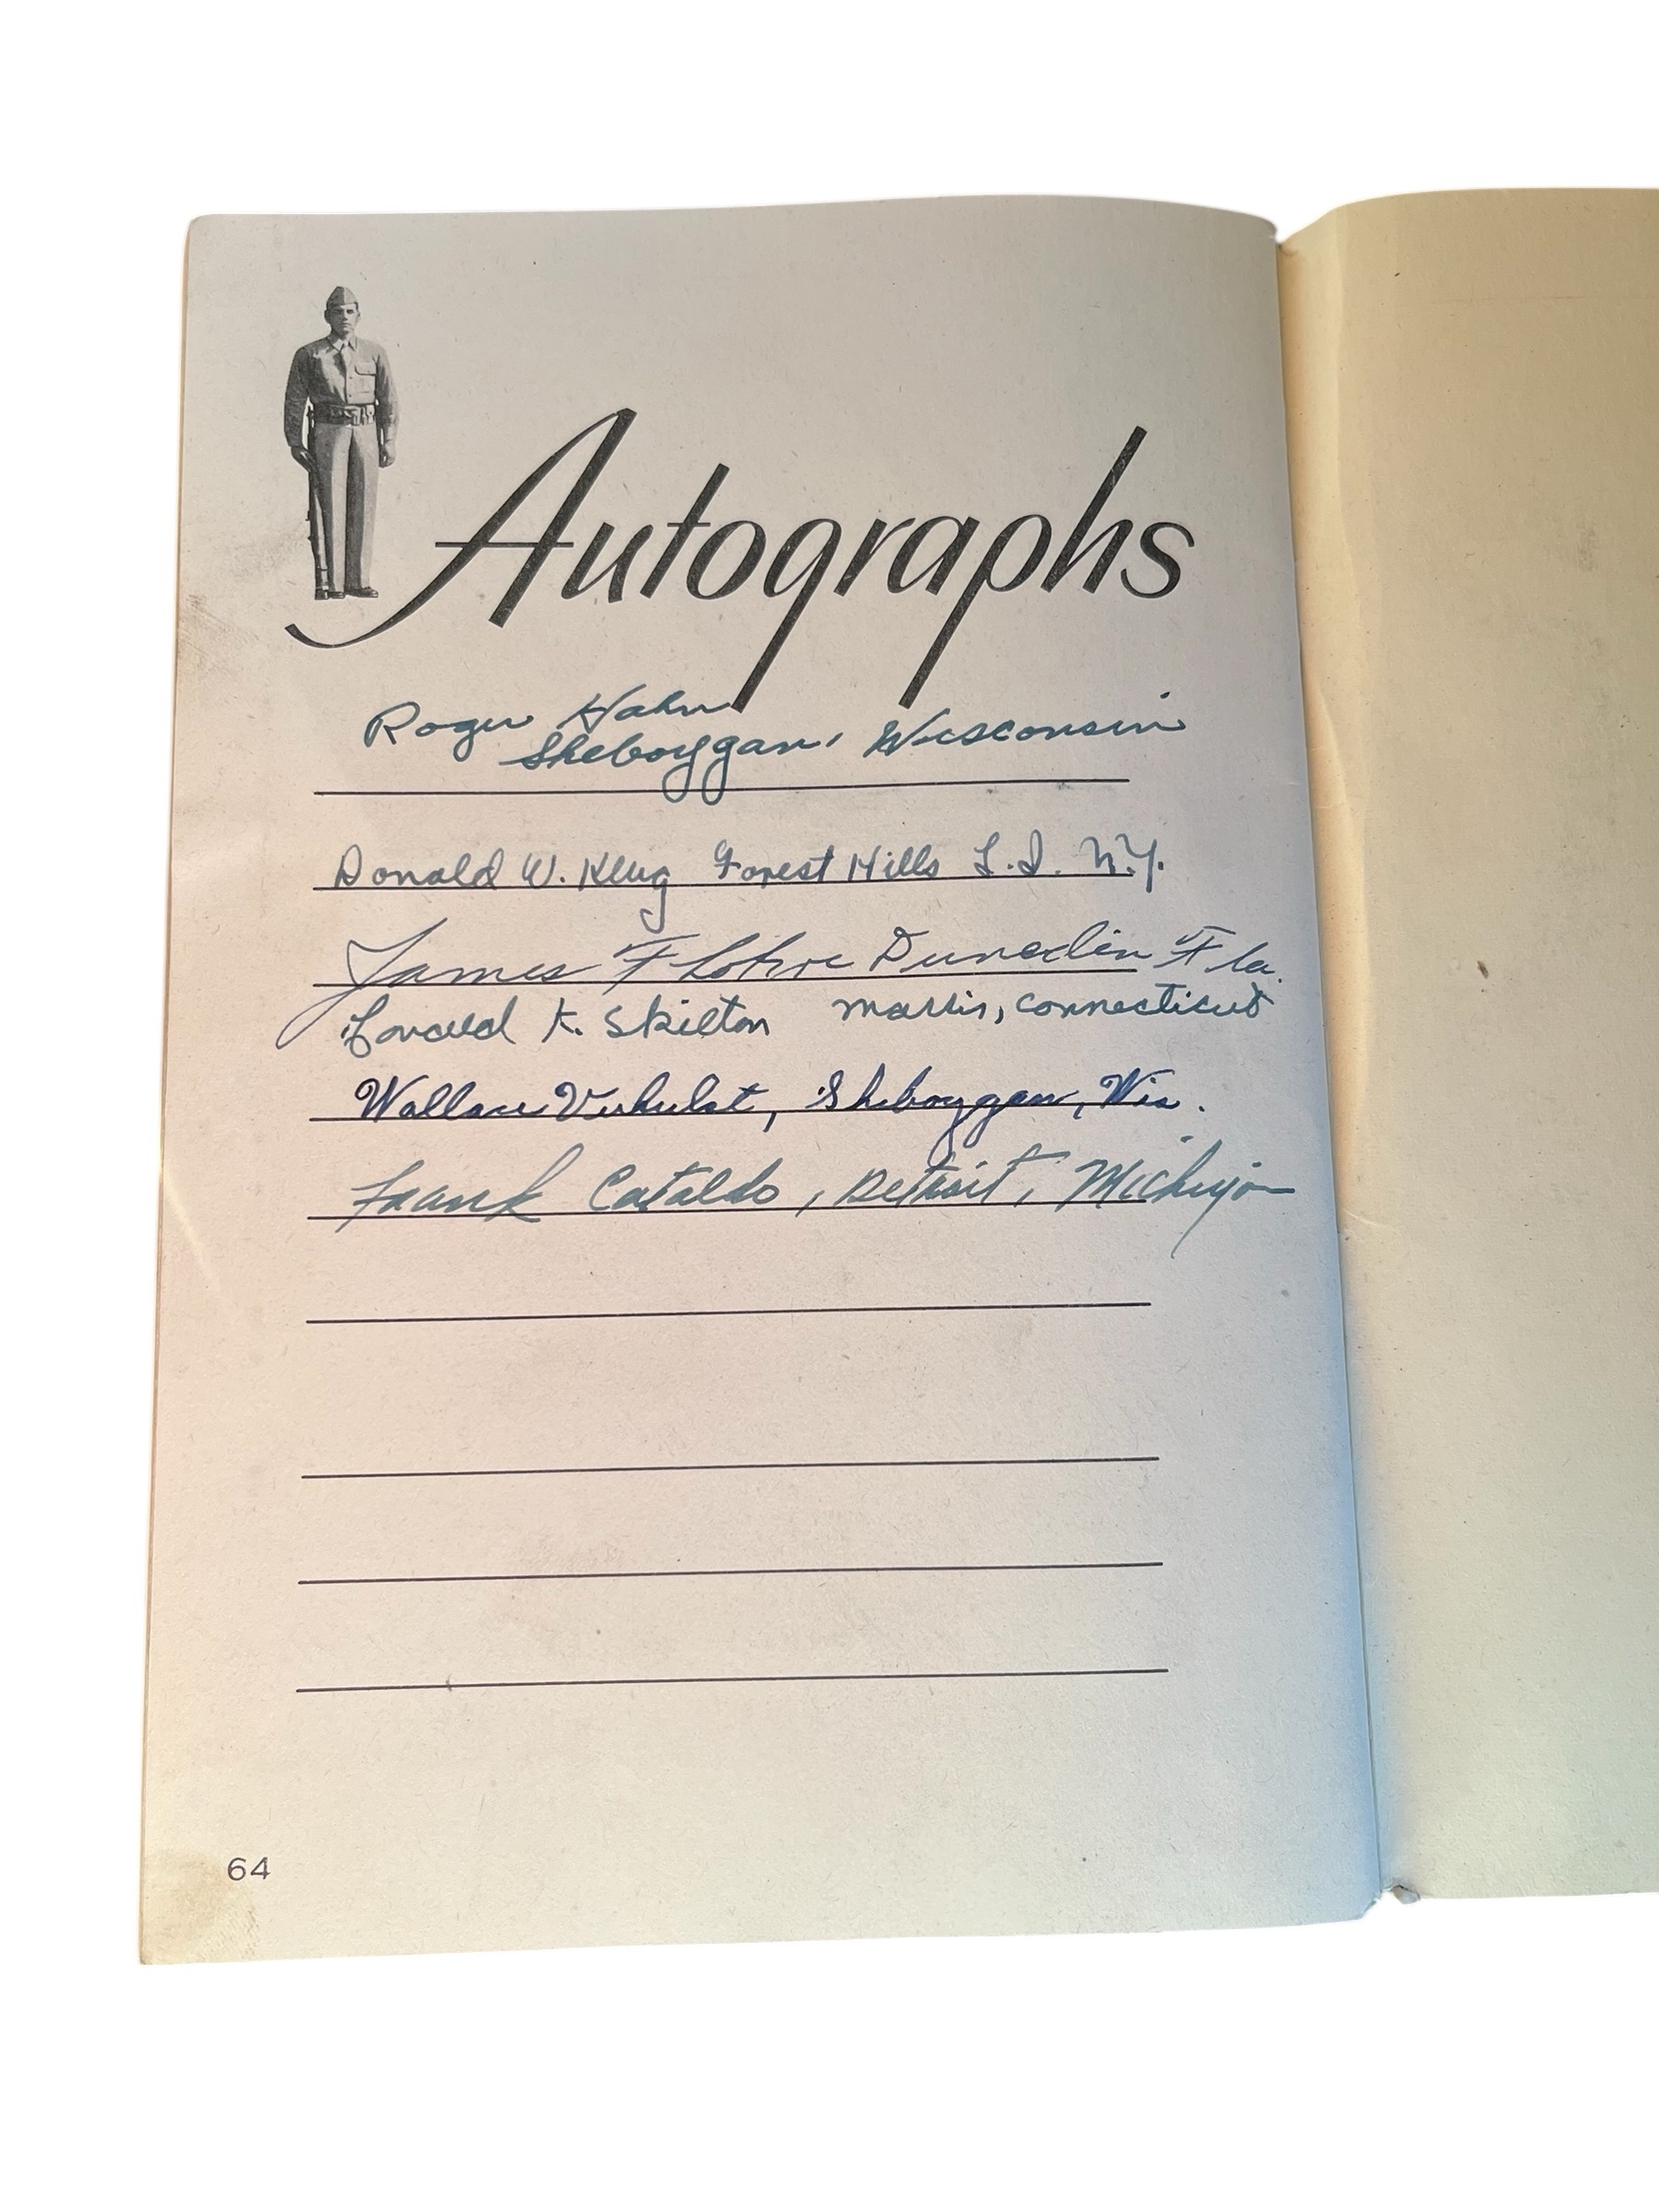 Autographs
Roger Hahn
Sheboygan, Wisconsin
Donald W. Klug Forest Hills L.I. N.Y.
James F Dunedin Fla.
K. Skilton Morris, Connecticut
Wallace Verhulst, Sheboygan, Wis.
Frank Cataldo, Detroit, Michigan
64